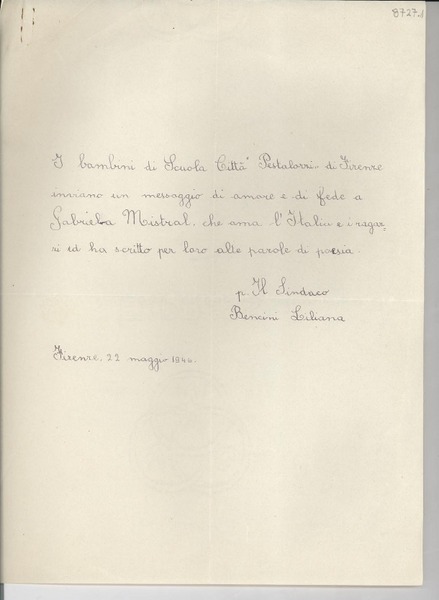 8727.d
I bambini di Scuola Città "Pestalozzi" di Firenze
inviano un messaggio di amore e di fede a
Gabriela Mistral, che ama l'Italia e i ragaz=
zi ed ha scritto per loro alte parole di poesia.
p. Il Sindaco
Bencini Liliana
Firenze, 22 maggio 1946.